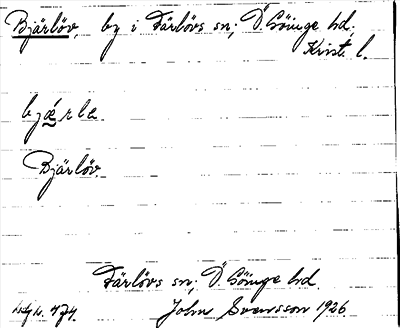 Bjärlöv, by i Färlövs sn; Ö. Göinge hd.,
Krist. l.
Bjärlöv.
Färlövs sn; Ö. Göinge hd.
John Svensson 1926